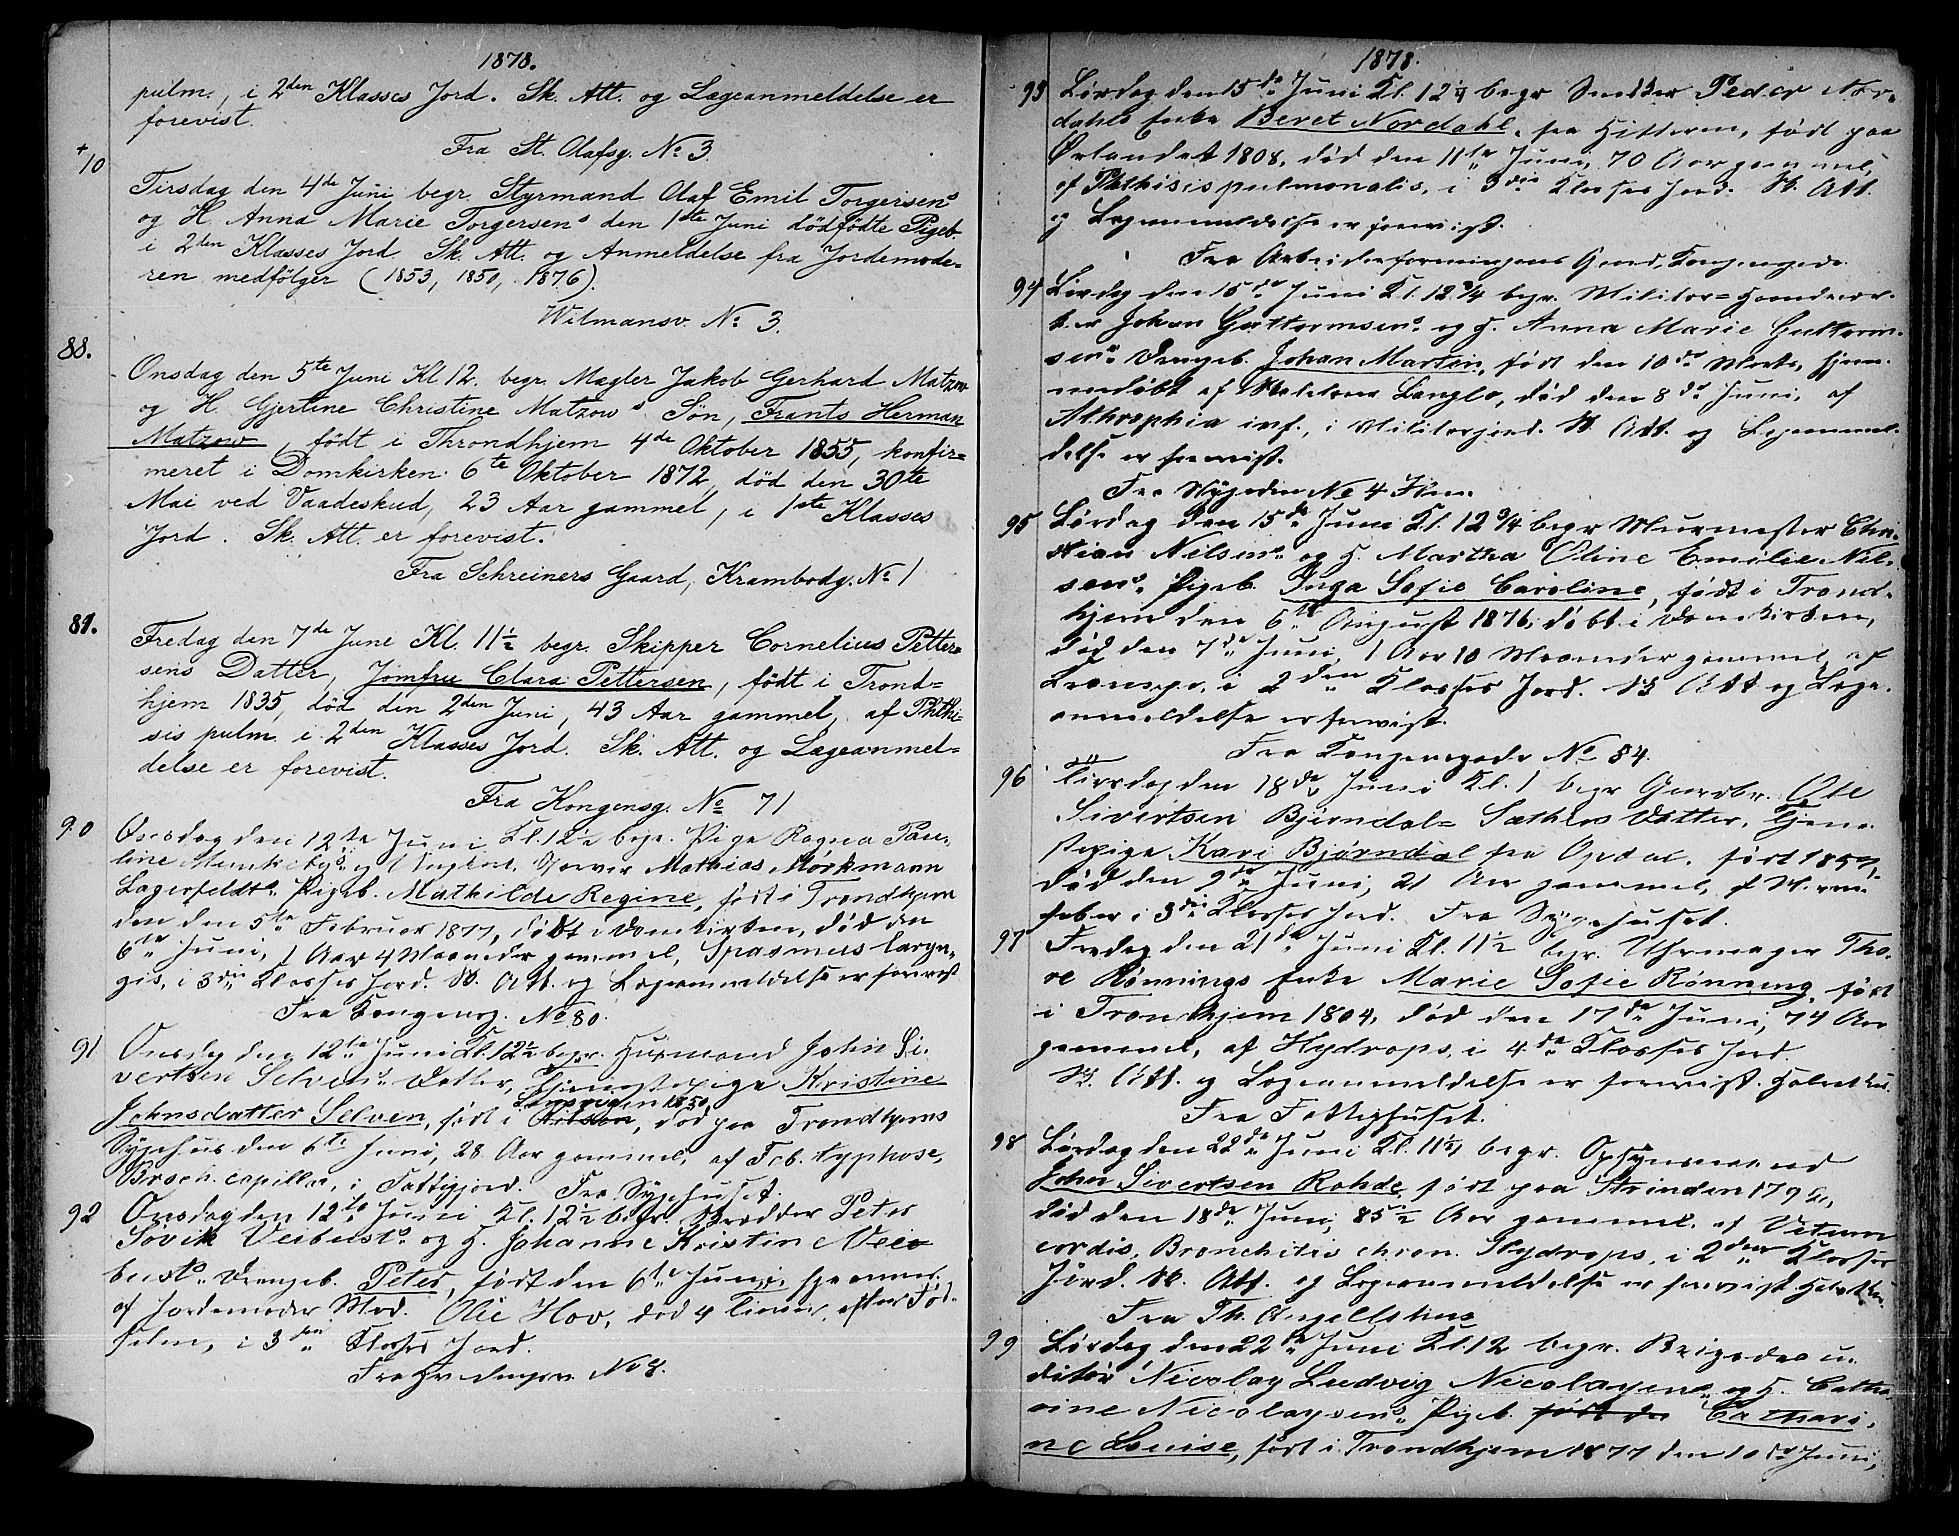 1878.
pulm., i 2den Klasses Jord. Sk. Att. og Lægeanmeldelse er
forevist.
Fra St. Olafsg. No 3.
+
10
Tirsdag den 4de Juni begr. Styrmand Olaf Emil Torgersens
og H. Anna Marie Torgersens den 1ste Juni dödfödte Pigeb.
i 2den Klasses Jord. Sk. Att. og Anmeldelse fra Jordemode-
ren medfölger (1853, 1850, 1876).
Wilmansv. No 3.
88.
Onsdag den 5te Juni Kl 12. begr. Mægler Jakob Gerhard Matzow
og H. Gjertine Christine Matzows Sön, Frants Herman
Matzow, födt i Throndhjem 4de Oktober 1855, konfir=
meret i Domkirken 6te Oktober 1872, död den 30te
Mai ved Vaadeskud, 23 Aar gammel, i 1ste Klasses
Jord. Sk. Att. er forevist.
Fra Schreiners Gaard, Krambodg. No 1
89.
Fredag den 7de Juni Kl. 11½ begr. Skipper Cornelius Petter=
sens Datter, Jomfru Clara Pettersen, födt i Trond=
hjem 1835, död den 2den Juni, 43 Aar gammel, af Phthi-
sis pulm. i 2den Klasses Jord. Sk. Att. og Lægeanmel=
delse er forevist.
Fra Kongensg. No 71
90
Onsdag den 12te Juni Kl. 12½ begr. Pige Ragna Pau-
line og Mathias Morkmann
Lagerfeldts Pigeb. Mathilde Regine, født i Trondhjem
den den 5te Februar 1877, døbt i Domkirken, død den
6te Juni, 1 Aar 4 Maaneder gammel, Spasmus laryn-
gis, i 3die Klasses Jord. Sk. Att. og Lægeanmeldelse er forevist
Fra Kongensg. No 80.
91
Onsdag den 12te Juni Kl. 12½ begr. Husmand John Si-
vertsen Selvens Datter, Tjenestepige Kristine
Johnsdatter Selven, født i 1850, død paa Trondhjems
Sygehus den 6te Juni, 28 Aar gammel, af Feb. typhose,
Bronch. capillar, i Fattigjord. Fra Sygehuset.
92
Onsdag den 12te Juni Kl. 12½ begr. Peter
Søvik Veibusts og H. Johanne Kristin Vei-
busts Drengeb. Peter, født den 6te Juni, hjemmed.
af Jordemoder Mad. Olie Hov, død 4 Timer efter Fød-
selen, i 3den Klasses Jord.
Fra No 8.
1878.
93
Lørdag den 15de Juni Kl. 12¼ begr Snedker Peder Nor-
dahls Enke Beret Nordahl, fra Hitteren, født paa
Ørlandet 1808, død den 11te Juni, 70 Aar gammel,
af Phthisis pulmonalis, i 3die Klasses Jord. Sk. Att.
og Lægeanmeldelse er forevist.
Fra Arbeiderforeningens Gaard, Kongensgade.
94
Lørdag den 15de Juni Kl. 12¾ begr. Militær= Haandvær-
ker Johan Guttormsens og H. Anna Marie Guttorm-
sens Drengeb. Johan Martin, født den 10de Marts, hjem-
medøbt af Langlo, død den 8de Juni, af
Athrophia inf., i Militærjord. Sk. Att. og Lægeanmel-
delse er forevist.
Fra No 4
95
Lørdag den 15de Juni Kl. 12¾ begr Murmester Chri-
stian Nilsens og H. Martha Oline Emilie Nil-
sens Pigeb. Inga Sofie Caroline, født i Trond-
hjem den 6te August 1876, døbt i Domkirken,
død den 7de Juni, 1 Aar 10 Maaneder gammel, af
i 2den Klasses Jord. Sk Att og Læge-
anmeldelse er forevist.
Fra Kongensgade No 84.
96
Tirsdag den 18de Juni Kl. 1 begr Gaardbr. Ole
Sivertsen Bjørndal= Sæthers Datter, Tjene-
stepige Kari Bjørndal fra Opdal, født 1857,
død den 9de Juni, 21 Aar gammel, af
feber i 3die Klasses Jord. Fra Sygehuset.
97
Fredag den 21de Juni Kl. 11½ begr. Uhrmager Tho-
re Rønnings Enke Marie Sofie Rønning, født
i Trondhjem 1804, død den 17de Juni, 74 Aar
gammel, af Hydrops, i 4de Klasses Jord.
Sk. Att. og Lægeanmeldelse er forevist.
Fra Fattighuset.
98
Lørdag den 22de Juni Kl. 11½ begr. Opsynsmand
John Sivertsen Rohde, født paa Strinden
død den 18de Juni, 85½ Aar gammel, af Vitium
cordis, Bronchitis chron. Hydrops, i 2den Klasses
Jord. Sk. Att. og Lægeanmeldelse er forevist
Fra Th. Angells Hus
99
Lørdag den 22de Juni Kl. 12 begr. Brigadeau-
ditør Nicolay Ludvig Nicolaysens og H. Catha-
rine Nicolaysens Pigeb. født den Cathari-
ne Louise, født i Trondhjem 1877 den 10de Juni,